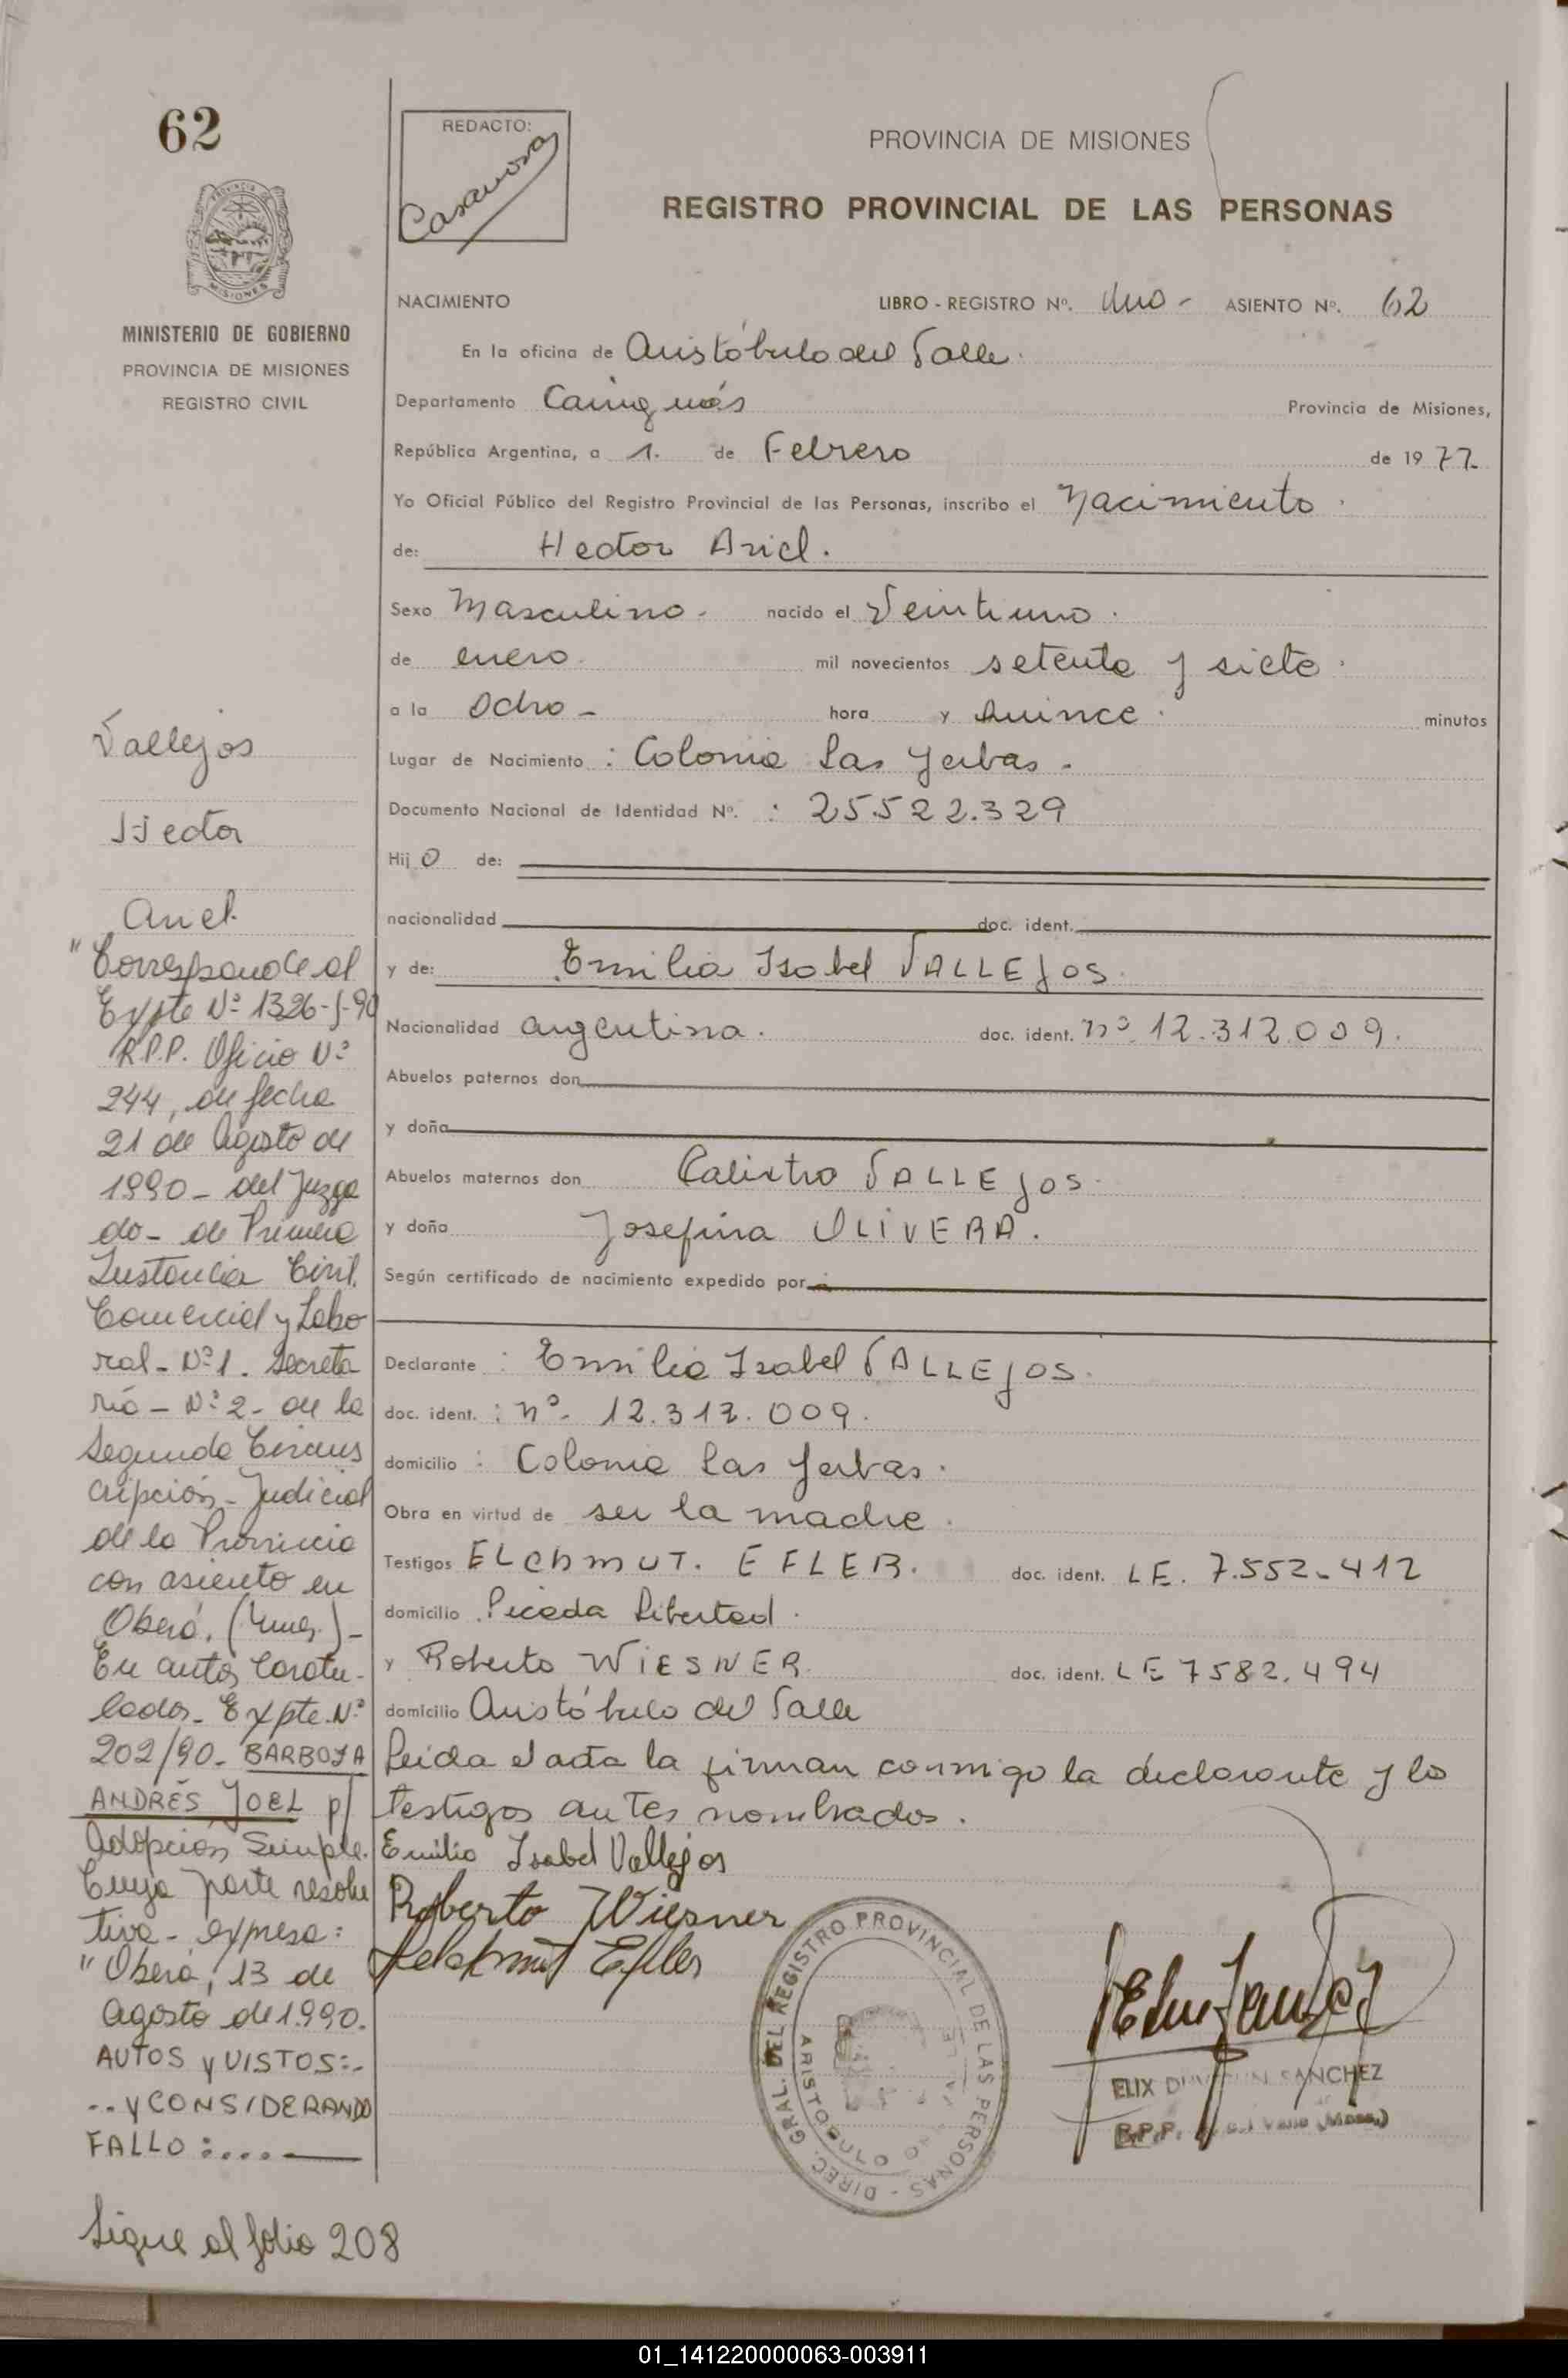 62
PROVINCIA DE
MISIONES
MINISTERIO DE GOBIERNO
PROVINCIA DE MISIONES
REGISTRO CIVIL
REDACTO:
Casanova
PROVINCIA DE MISIONES
REGISTRO PROVINCIAL DE LAS PERSONAS
NACIMIENTO LIBRO - REGISTRO Nº. Uno - ASIENTO Nº. 62
En la oficina de Aristóbulo del Valle.
Departamento Cainguás Provincia de Misiones,
República Argentina, a 1. de Febrero de 1977.
Yo Oficial Público del Registro Provincial de las Personas, inscribo el Nacimiento.
de: Hector Ariel.
Sexo Masculino. nacido el Veintiuno.
de enero. mil novecientos setenta y siete.
a la Ocho - hora y Quince. minutos
Lugar de Nacimiento : Colonia Las Yerbas.
Documento Nacional de Identidad Nº. : 25.522.329
Hijo de:
nacionalidad doc. ident.
y de: Emilia Isabel VALLEJOS.
Nacionalidad argentina. doc. ident. nº 12.312.009.
Abuelos paternos don
y doña
Abuelos maternos don Calixtro VALLEJOS.
y doña Josefina OLIVERA.
Según certificado de nacimiento expedido por
Declarante : Emilia Isabel VALLEJOS.
doc. ident. : nº. 12.312.009.
domicilio : Colonia Las Yerbas.
Obra en virtud de ser la madre.
Testigos ELCHMUT. EFLER. doc. ident. LE. 7.552.412
domicilio Picada Libertad.
y Roberto WIESNER. doc. ident. LE 7582.494
domicilio Aristóbulo del Valle
Leida el acta la firman conmigo la declarante y los
testigos antes nombrados.
Emilia Isabel Vallejos
Roberto Wiesner
Helchmut Efler
DIREC. GRAL. DEL REGISTRO PROVINCIAL DE LAS PERSONAS
ARISTOBULO
ELIX SANCHEZ
R.P.P.
Vallejos
Hector
Ariel.
"Corresponde al
Expte Nº 1326-J-90
R.P.P. Oficio Nº
244, de fecha
21 de Agosto de
1990 - del Juzga
do - de Primera
Instancia Civil,
Comercial y Labo
ral - Nº 1. Secreta
ría - Nº 2 - de la
Segunda Circuns
cripción - Judicial
de la Provincia
con asiento en
Oberá. (Mnes.) -
En autos Caratu-
lados - Expte. Nº
202/90 - BARBOZA
ANDRÉS JOEL p/
Adopción Simple.
Cuya parte resolu
tiva - expresa:
"Oberá, 13 de
agosto de 1.990.
AUTOS y VISTOS:-
..y CONSIDERANDO
FALLO:....
Sigue al folio 208
01_141220000063-003911